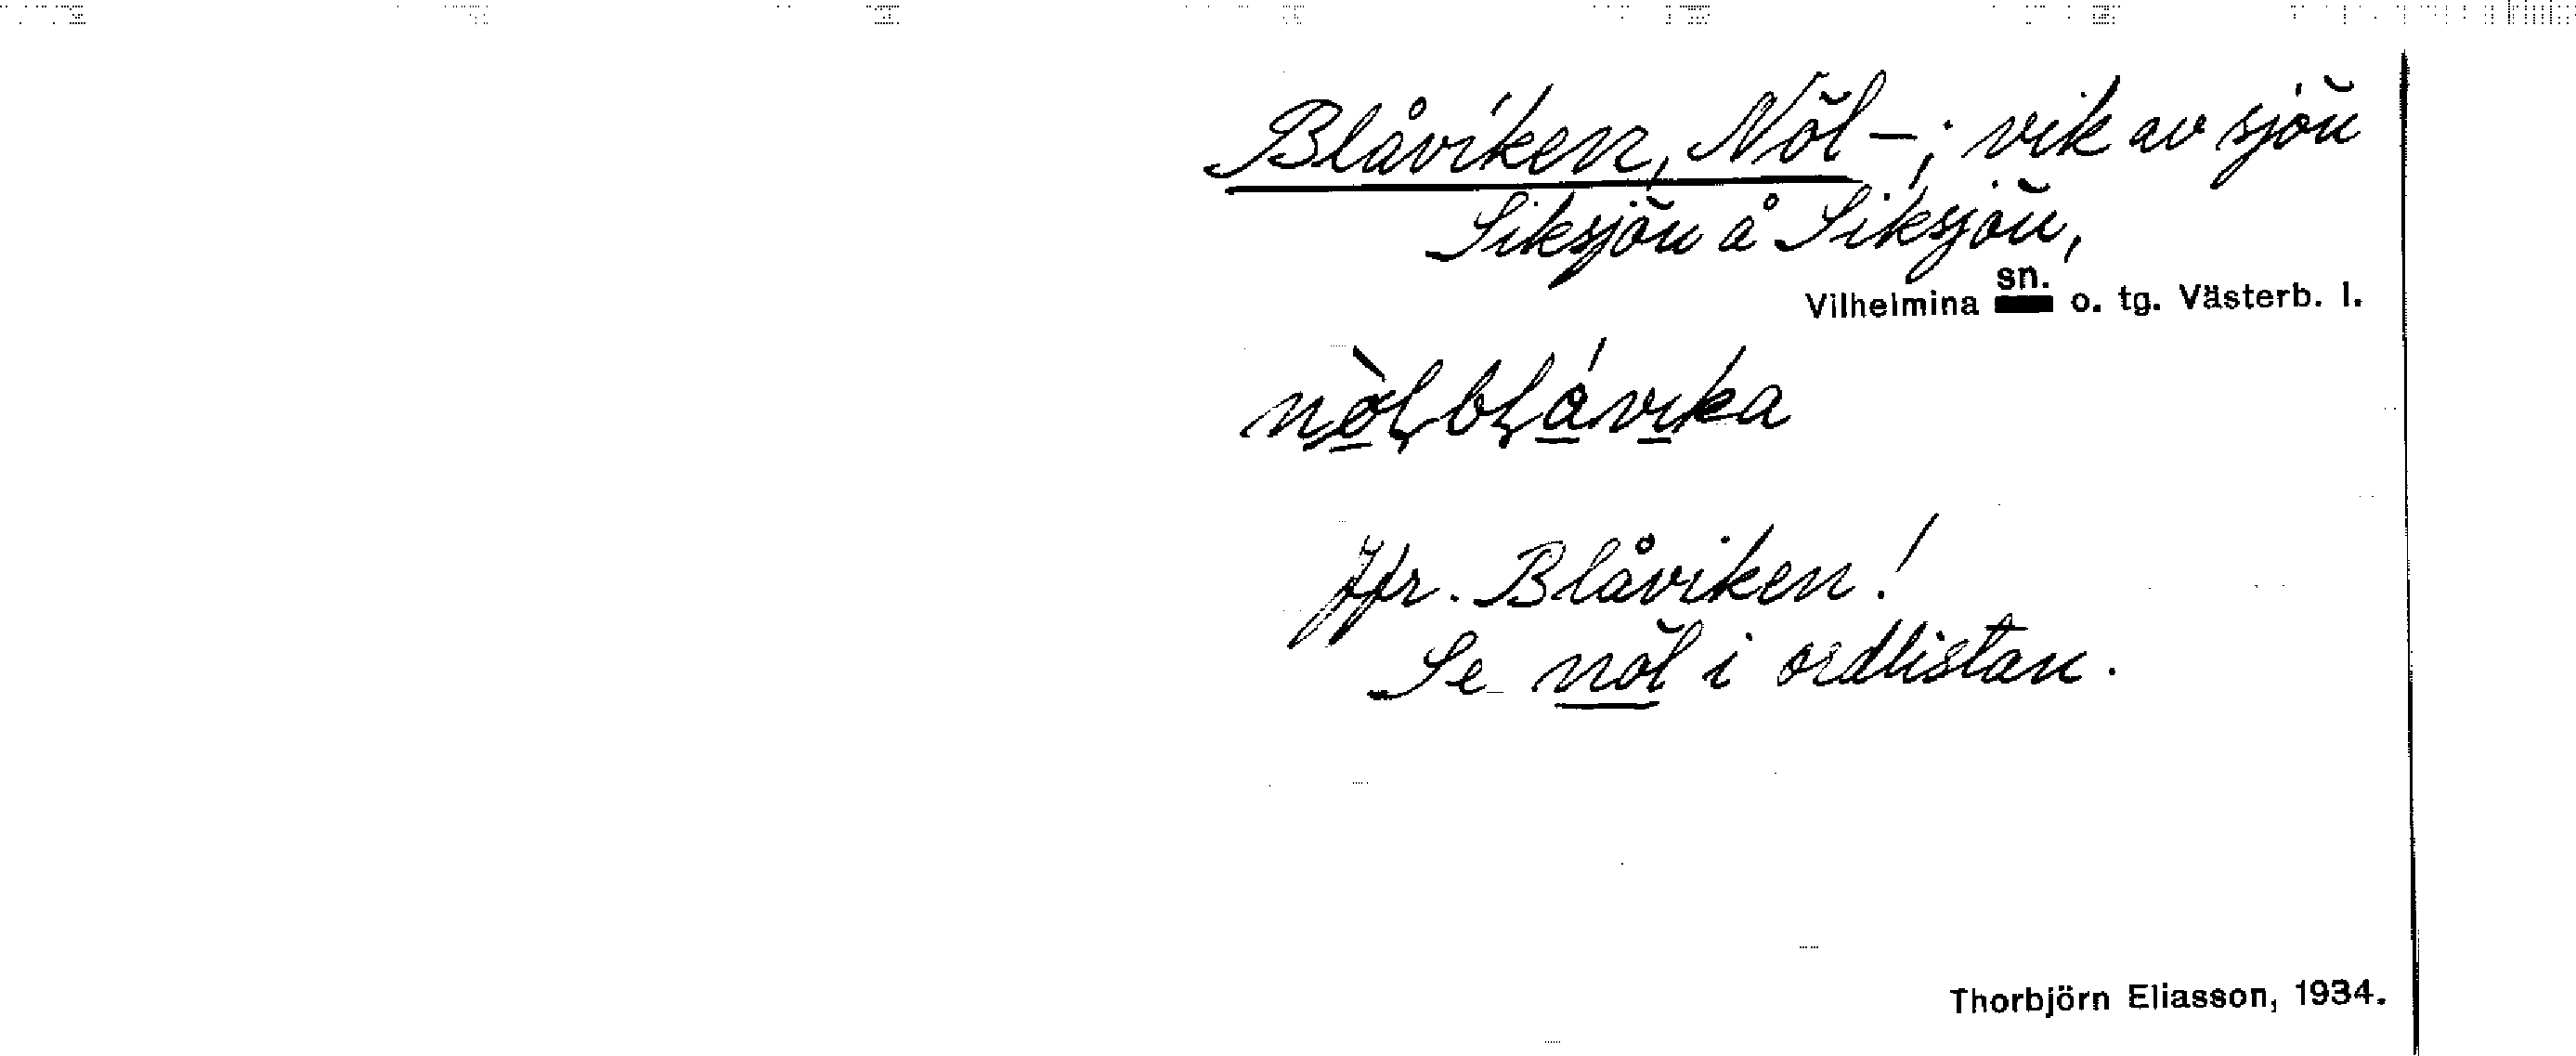 Blåviken, Nöl-; vik av sjön
Siksjön å Siksjön,
sn.
Vilhelmina o. tg. Västerb. l.
nòlblávika
Jfr. Blåviken!
Se nöl i ordlistan.
Thorbjörn Eliasson, 1934.